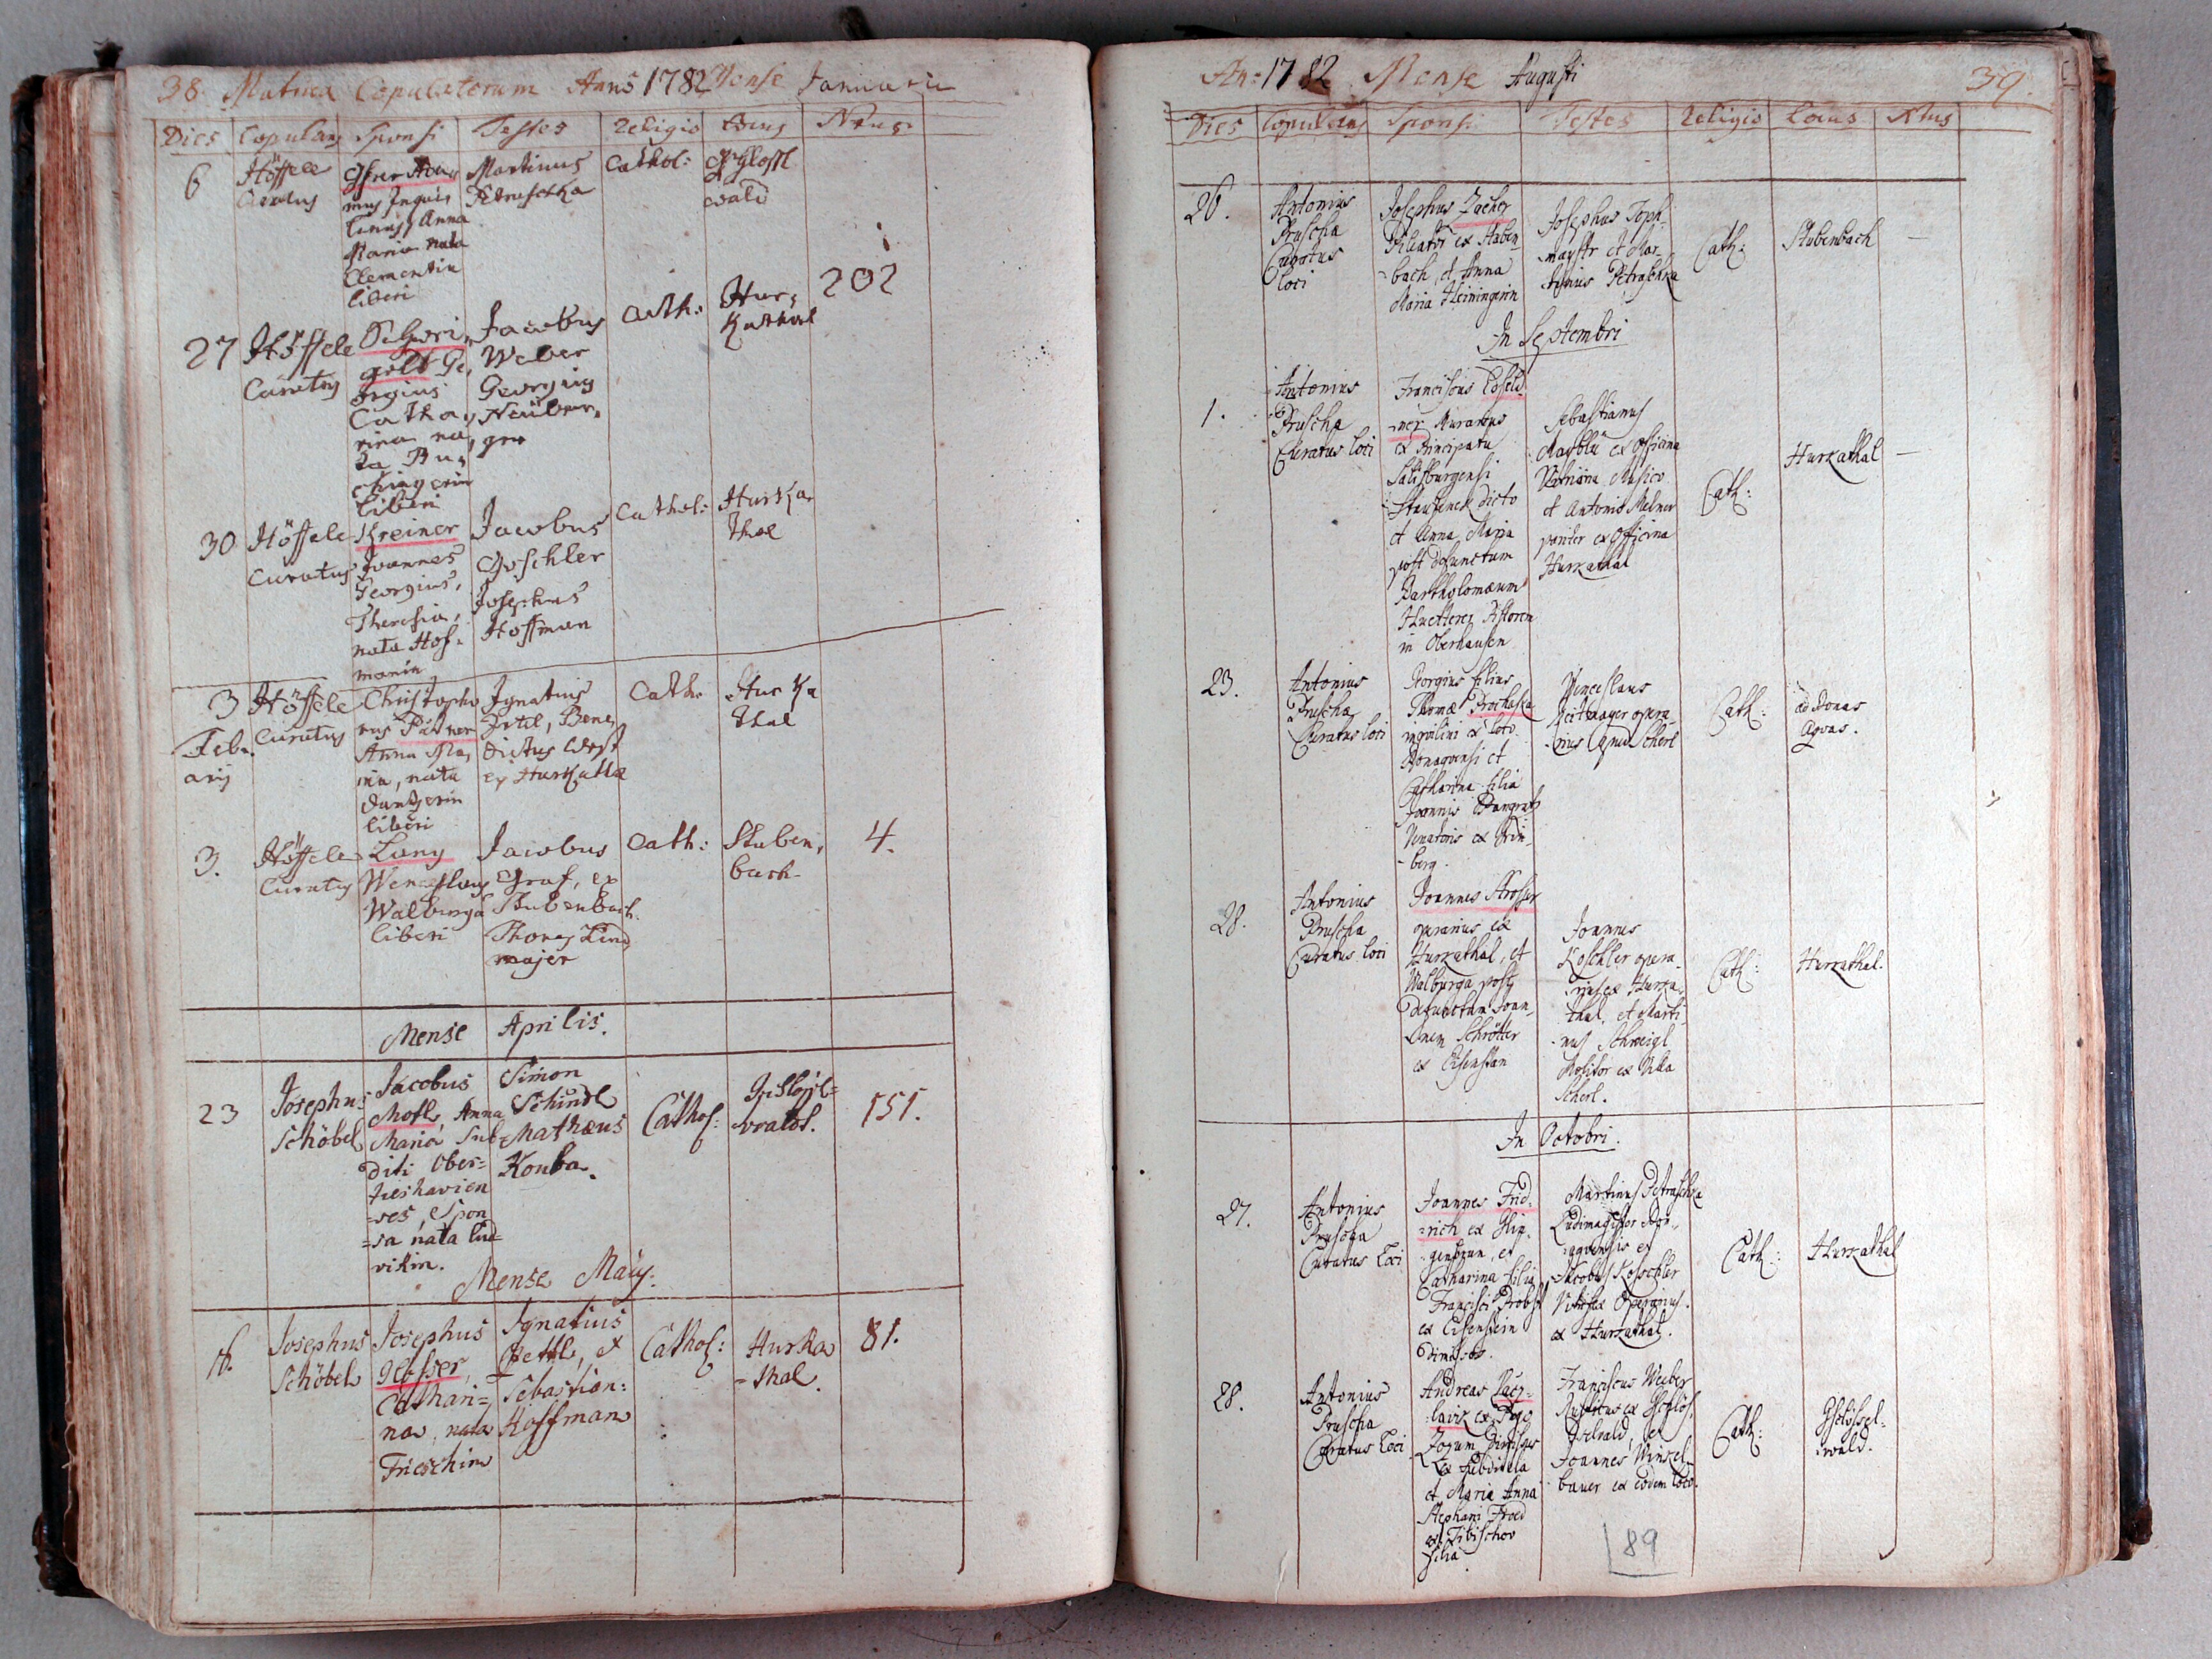 38. Matrica Copulatorum Anno 1782 Mense Januarii
Dies Copulans Sponsi Testes Religio Locus Nrus
6
Höffele
Curatus
mus Inquis
linus, Anna
Maria nata
Clementin
liberi
Martinus
Petraschka
Cathol:
wald
27
Höffele
Curatus
gold Ge,
orgius
Catha,
rina na,
ta Bu,
liberi
Jacobus
Weber
Georgius
Neüber,
ger
Cath:
Hur,
Kathal
202
30
Höffele
Curatus
Kreiner
Joannes
Georgius,
Theresia,
nata Hof=
manin
Jacobus
Goschler
Josephus
Hoffman
Cathol:
HurKa,
thal
3
Febr.
arij
Höffele
Curatus
Christopho
rus Pätner
Anna Ma,
ria, nata
liberi
Ignatius
Zettl, Bene,
dictus West
ex HurKathal
Cath.
HurKa
thal
3.
Höffele
Curatus
Lang
Wenceslaus
Walburga
liberi
Jacobus
Graf, ex
Stubenbach.
Thomas Lind
majer
Cath:
Stuben,
bach
4.
Mense Aprilis.
23
Josephus
Schöbel
Jacobus
Mosl, Anna
Maria Sub
diti Ober=
=ses, Spon
=sa nata Lud=
vikin.
Simon
Schindl
Mathæus
Kouba.
Cathol:
Gschlössl=
wald.
151.
Mense Maij.
Josephus
Schöbel
Josephus
Catharin=
na, nata
Frieschin
Ignatius
Zettl, et
Sebastian:
Hoffman
Cathol:
Hurka
=thal.
81.
An: 1782 Mense Augusti 39.
Dies Copulans Sponsi Testes Religio Locus Nrus
26.
Antonius
Pruscha
Curatus
loci
Josephus Zacher
Pileator ex Stuben-
-bach, et Anna
Maria Heiningerin
Josephus Toph-
-mayr et Mar-
-tinus Petraschka
Cath:
Stubenbach
—
In Septembri
1.
Antonius
Pruscha
Curatus loci
Franciscus
-ner Murarius
ex Principatu
Salisburgensi
dicto
et Anna Maria
post defunctum
Bartholomæum
Pistorem
in Oberhausen
Sebastianus
ex Officina
Musico
et Antonio Melner
pariter ex Officina
Hurkathal
Cath:
Hurkathal
—
23.
Antonius
Pruscha
Curatus loci
Georgius filius
Thomæ Prochaska
inquilini ex loco
et
Catharina filia
Joannis Pangratz
Venatoris ex
-berg.
Venceslaus
opera-
-rius apud Scherl
Cath:
ad Bonas
Aquas.
28.
Antonius
Pruscha
Curatus loci
Joannes Strosser
operarius ex
Hurkathal, et
Walburga post
defunctum Joan-
-nem Schrötter
ex Eisenstein
Joannes
Koschler opera-
-rius ex Hurka-
thal, et Marti-
-nus Schweigl
Molitor ex Villa
Scherl.
Cath:
Hurkathal.
In Octobri.
27.
Antonius
Pruscha
Curatus loci
Joannes Frid-
-rich ex
et
Catharina filia
Francisci Probst
ex Eisenstein
Martinus Petraschka
Ludimagister
et
Jacobus Koschler
Operarius.
ex Hurkathal.
Cath:
Hurkathal
28.
Antonius
Pruscha
Curatus loci
Andreas
et Maria Anna
Stephani
filia
Franciscus Weber
Rusticus ex Gschlös-
selwald, et
Joannes Winkel-
bauer ex eodem loco.
Cath:
Gschlössel-
wald.
89